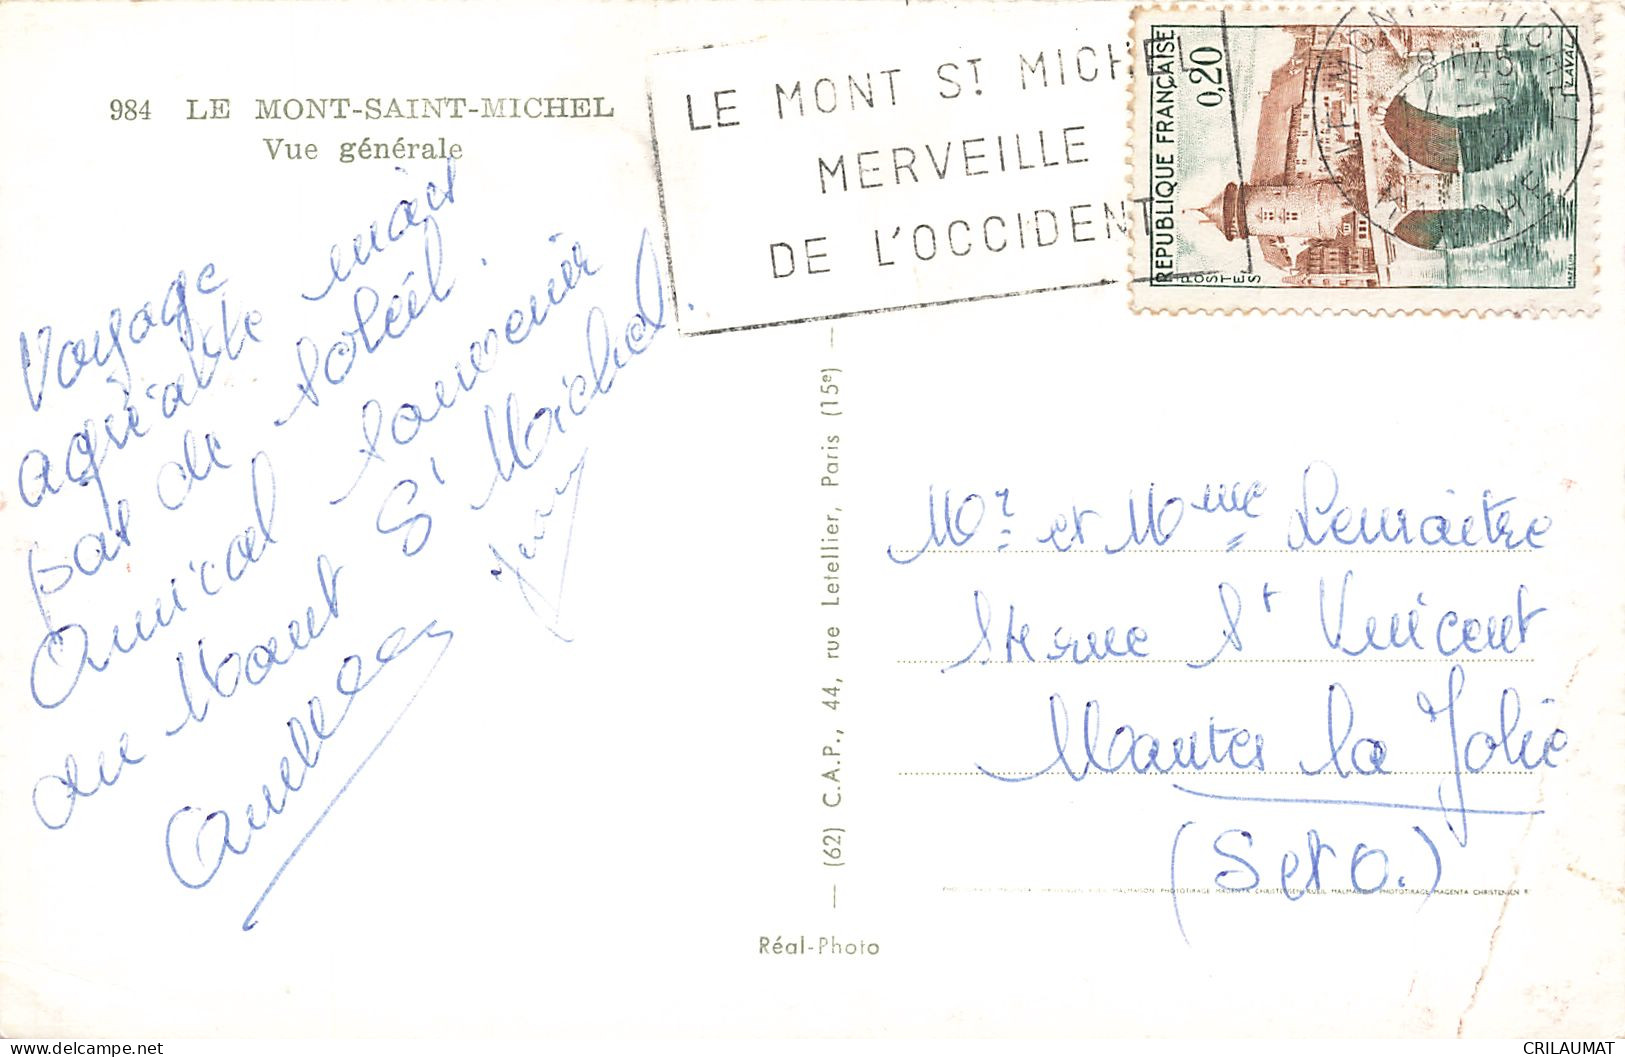 984 LE MONT-SAINT-MICHEL
Vue générale
Voyage
agréable mais
pas de soleil.
Amical souvenir
du Mont St Michel.
LE MONT ST MICHEL
MERVEILLE
DE L'OCCIDENT
RÉPUBLIQUE FRANÇAISE
0,20
POSTES
LAVAL
(62) C.A.P., 44, rue Letellier, Paris (15e)
Réal-Photo
Mr et Mme Lemaitre
St Vincent
Mantes la Jolie
(S et O.)
CRILAUMAT
delcampe.net